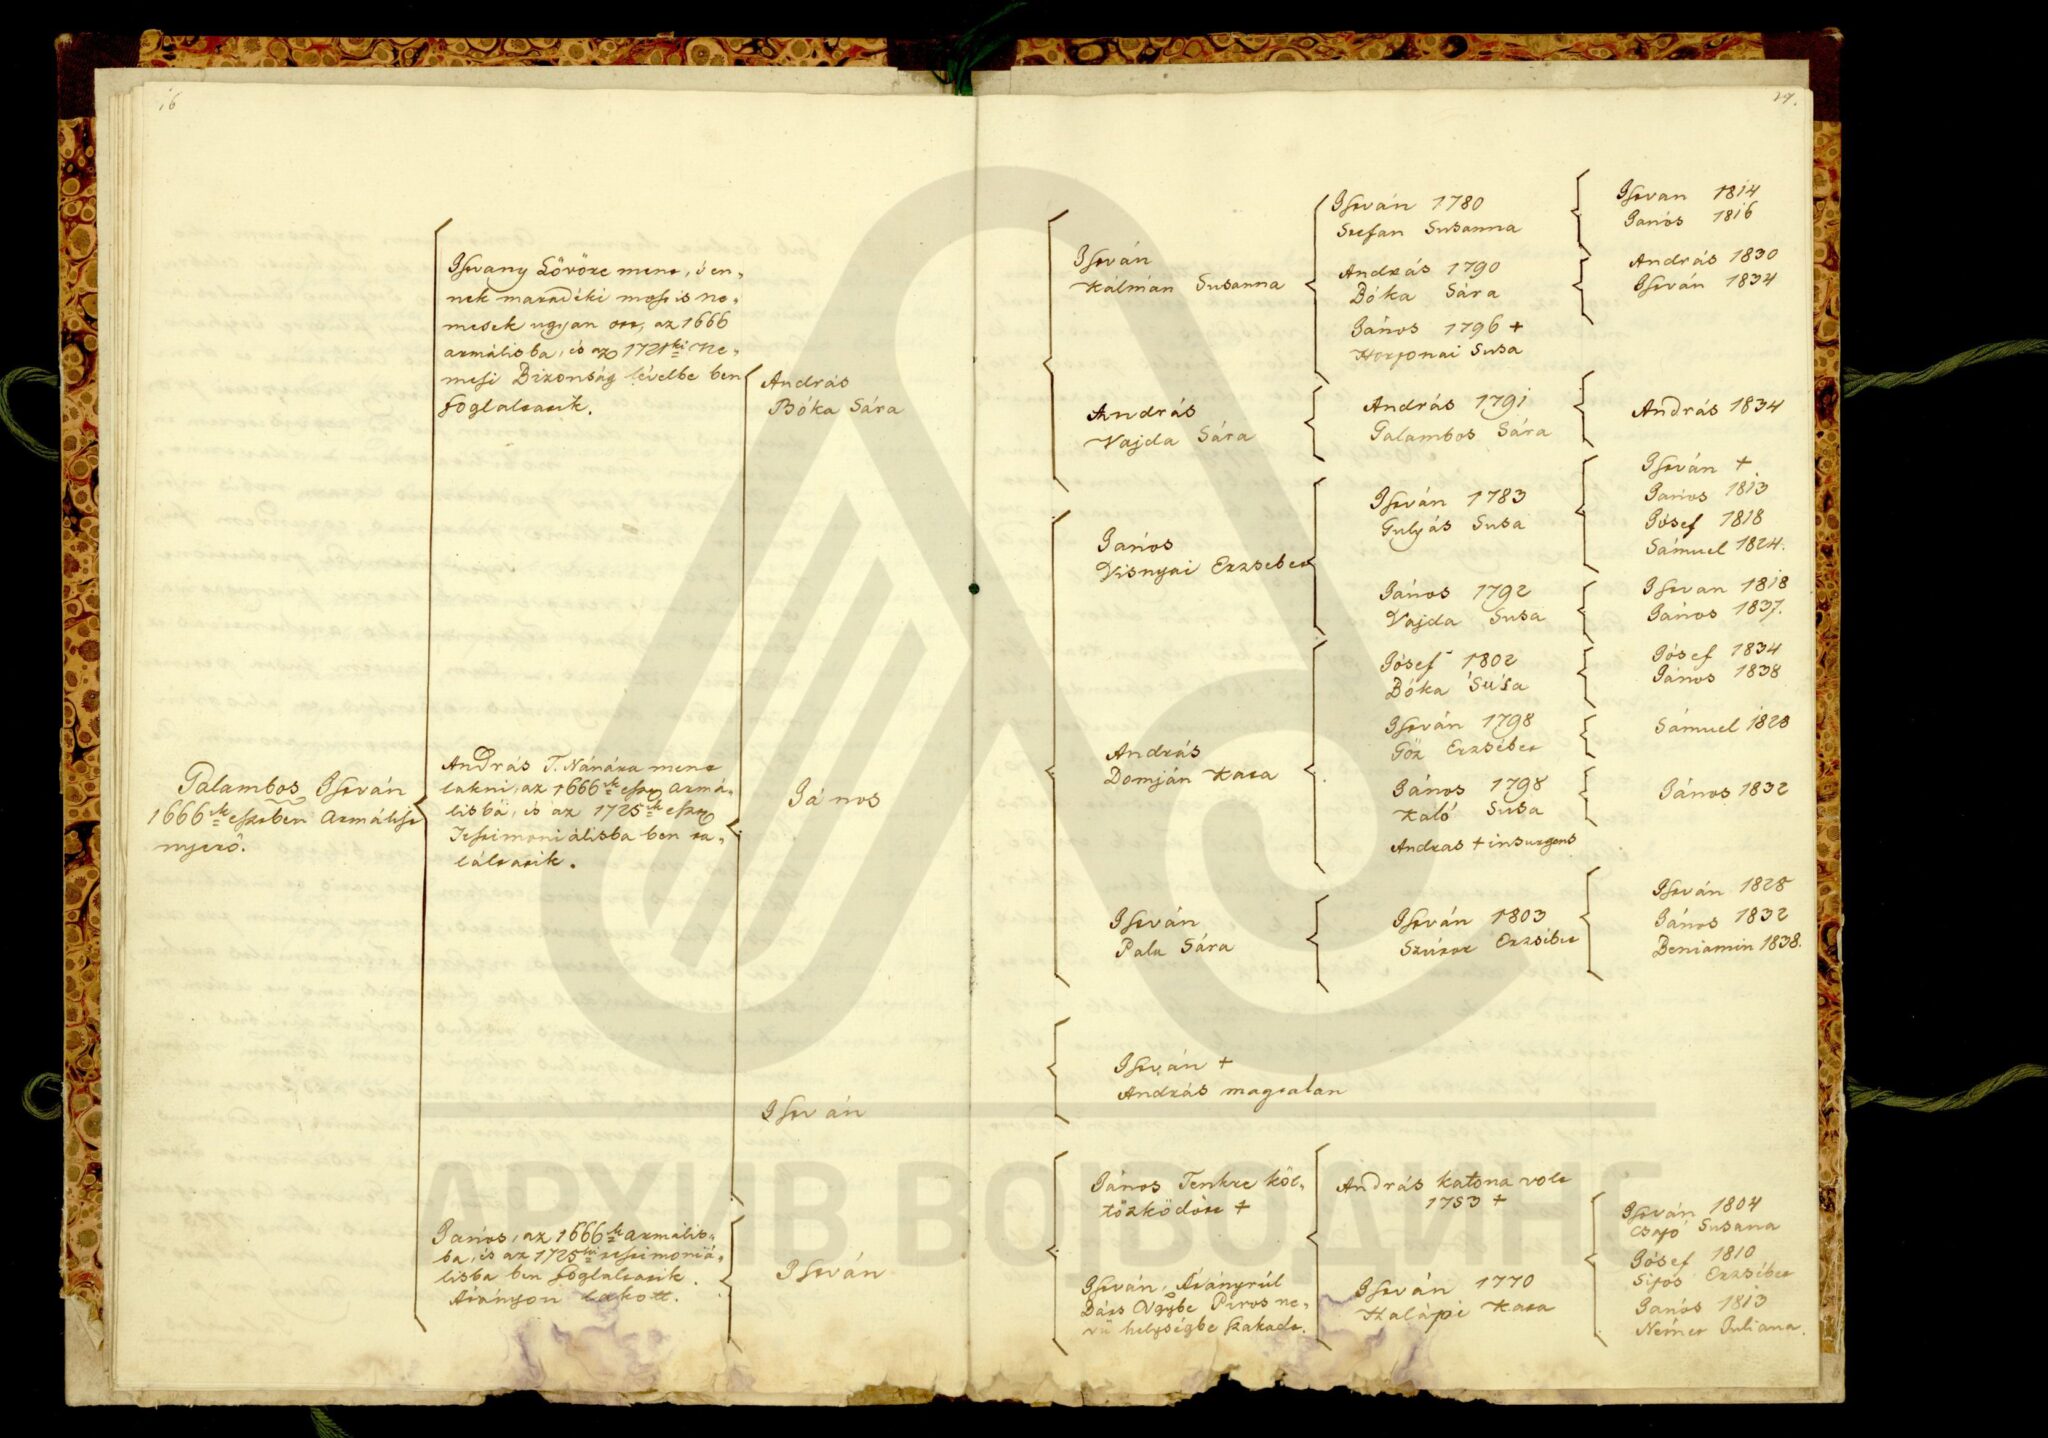 16
Istvany Lövöre ment, 's en-
nek maradéki most is ne-
mesek ugyan ott, az 1666
armálisba, és az 1725ki Ne-
mesi Bizonság lévelbe ben
foglaltatik.
András
Bóka Sára
Galambos István
1666ik eszt:ben Armálist
nyerö.
András T. Nánára ment
lakni, az 1666ik eszt. armá-
lisba, és az 1725ik eszt.
Testimoniálisba ben ta-
láltatik.
János
István
János, az 1666ik armális-
ba, és az 1725ki testimoniá-
lisba ben foglaltatik.
Arányon lakott.
István
17.
István
Kálmán Susanna
András
Vajda Sára
János
Visnyai Erzsebet
András
Domján Kata
István
Pala Sára
István +
András magtalan
János Tenkre köl-
tözködött +
István, Arányrúl
Báts Vgybe Piros ne-
vü helységbe szakadt.
István 1780
Stefan Susanna
András 1790
Bóka Sára
János 1796 +
Horjonai Susa
András 1791
Galambos Sára
István 1783
Gulyás Susa
János 1792
Vajda Susa
Jósef 1802
Bóka Susa
István 1798
Göz Erzsébet
János 1798
Kaló Susa
Andras + insurgens
István 1803
Szúrot Erzsébet
András katona volt
1753 +
István 1770
Kalápi Kata
Istvan 1814
János 1816
András 1830
István 1834
András 1834
István +
János 1813
Jósef 1818
Sámuel 1824.
Istvan 1818
János 1837.
Jósef 1834
János 1838
Sámuel 1828
János 1832
István 1828
János 1832
Beniamin 1838.
István 1804
Csajó Susana
Jósef 1810
Sipos Erzsébet
János 1813
Német Juliana.
АРХИВ ВОЈВОДИНЕ